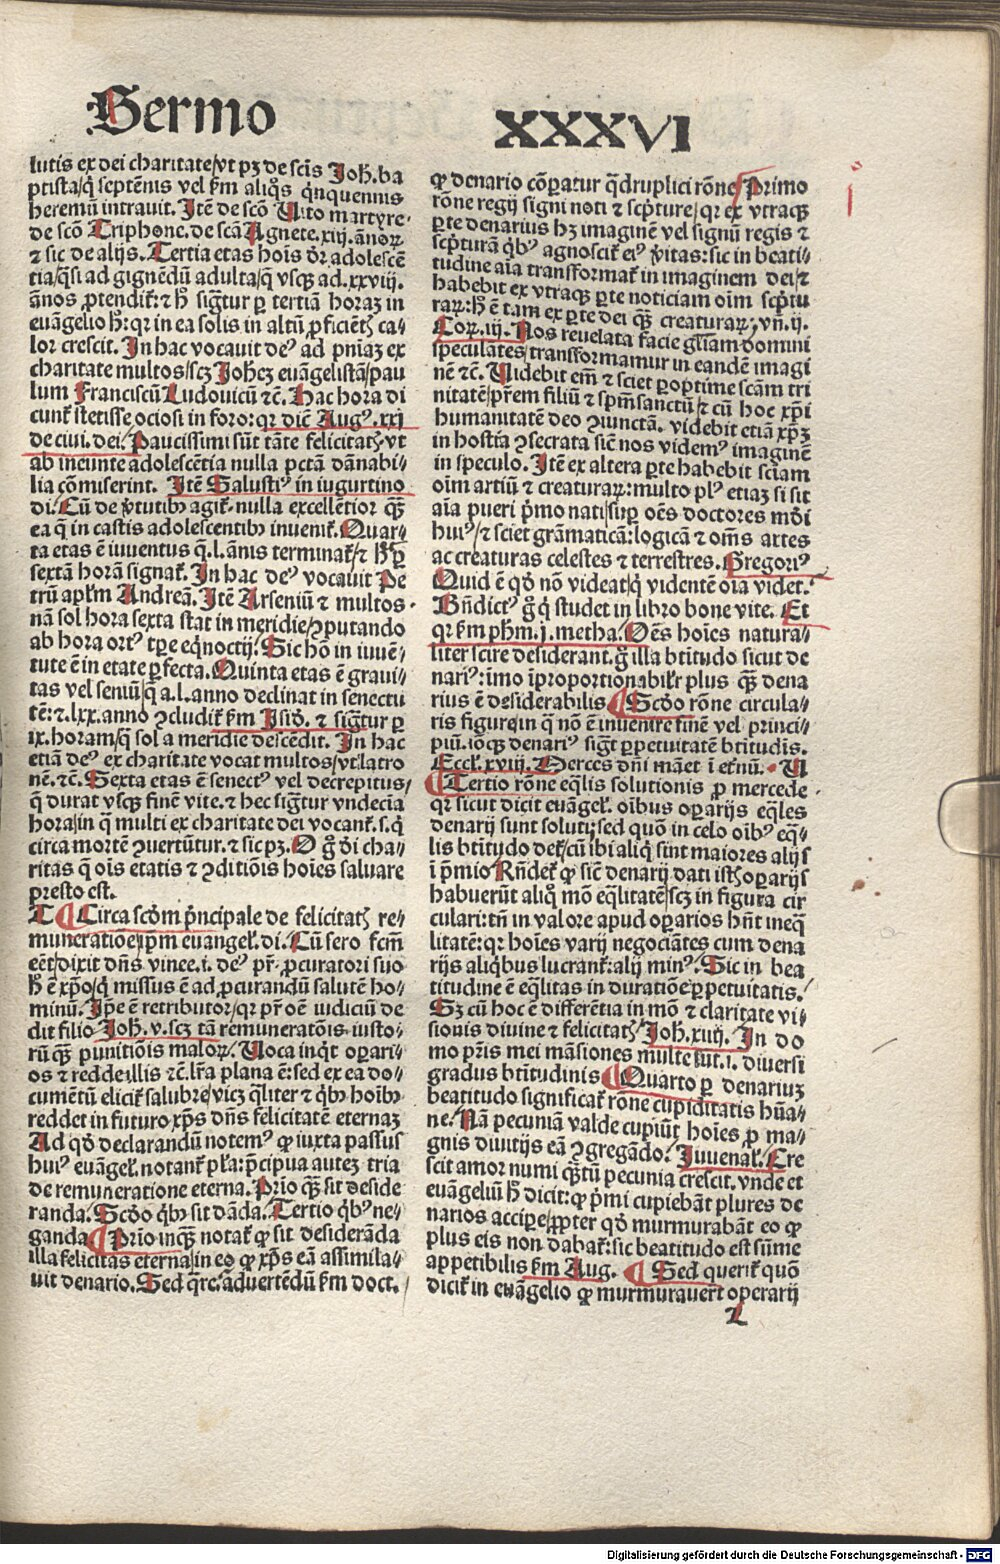 Sermo
XXXVI
lutis ex dei charitate/vt pꝫ de scīs Joħ. ba
ptista/q̇ septēnis vel ẜm aliq̇s q̇nquennis
heremū intrauit. Itē de scō Uito martyre·
de scō Triphone. de scā Agnete. xiij. ānoꝝ
⁊ sic de alijs. Tertia etas hoīs dr̄ adolescē
tia/q̄si ad gignēdū adulta/q̄ vsqꝫ ad. xxviij.
ānos ꝓtendit̄: ⁊ h̄ sigt̄ur ꝑ tertiā horaꝫ in
euāgelio h̄: qꝛ in ea solis in altū ꝓficiētꝭ ca⸗
lor crescit. In hac vocauit deꝰ ad pn̄iaꝫ ex
charitate multos/scꝫ Joħeꝫ euāgelistā/pau
lum Franciscū Ludouicū ⁊c̄. Hac hora di
cunt̄ stetisse ociosi in foro: qꝛ dic̄ Augꝰ. xxj
de ciui. dei. Paucissimi sūt tāte felicitatꝭ vt
ab ineunte adolescētia nulla pctā dānabi⸗
lia cōmiserint. Itē Salustiꝰ in iugurtino
di. Cū de v̇tutibꝰ agit̄. nulla excellētior qꝫ̄
ea q̄ in castis adolescentibꝰ inuenit̄. Quar⸗
ta etas ē iuuentus q̄. l. ānis terminat̄/⁊ h̄ ꝑ
sextā horā signat̄. In hac deꝰ vocauit Pe
trū apłm Andreā. Itē Arseniū ⁊ multos·
nā sol hora sexta stat in meridie/ꝯputando
ab hora ortꝰ tꝑe eq̇noctij. Sic hō in iuuē⸗
tute ē in etate ꝑfecta. Quinta etas ē graui⸗
tas vel seniū/q̄ a. l. anno declinat in senectu
tē: ⁊. lxx. anno ꝯcludit̄ ẜm Isid̄. ⁊ sigt̄ur ꝑ
ix. horam/q̄ sol a meridie descēdit. In hac
etiā deꝰ ex charitate vocat multos/vt latro
nē. ⁊c̄. Sexta etas ē senectꝰ vel decrepitus/
q̄ durat vsqꝫ finē vite. ⁊ hec sigt̄ur vndecīa
hora/in q̄ multi ex charitate dei vocant̄. s. q̇
circa mortē ꝯuertūtur. ⁊ sic pꝫ. O g̊ dei cha
ritas q̄ oīs etatis ⁊ ꝯditiōis hoīes saluare
presto est.
T ¶ Circa scd̄m pr̄ncipale de felicitatꝭ re⸗
muneratiōe/ip̄m euangeł. di. Cū sero fcm̄
eēt/dixit dn̄s vinee. i. deꝰ pr̄. ꝓcuratori suo
h̄ ē xp̄o/q̇ missus ē ad ꝓcurandū salutē ho⸗
minū. Ip̄e ē retributor/qꝛ pr̄ oē iudiciū de
dit filio. Joħ. v. scꝫ tā remuneratōis iusto⸗
rū qꝫ̄ punitiōis maloꝝ. Uoca inq̇t oꝑari⸗
os ⁊ redde illis ⁊c̄. lr̄a plana ē: sed ex ea do⸗
cumētū elicit̄ salubre/vicꝫ q̄liter ⁊ q̇bꝰ hoībꝰ
reddet in futuro xp̄s dn̄s felicitatē eternaꝫ
Ad qd̄ declarandū notemꝰ ꝙ iuxta passus
huiꝰ euāgeł. notant̄ pła: pr̄cipua auteꝫ tria
de remuneratione eterna. Prīo qꝫ̄ sit deside
randa. Scd̄o q̇bꝰ sit dāda. Tertio q̇bꝰ ne⸗
ganda. ¶ Prīo inqꝫ̄ notat̄ ꝙ sit desiderāda
illa felicitas eterna/in eo ꝙ xp̄s eā assimila⸗
uit denario. Sed q̄re. aduertēdū ẜm doct.
ꝙ denario cōꝑatur q̄druplici rōne. Primo
rōne regij signi noti ⁊ scp̄ture/qꝛ ex vtraqꝫ
ꝑte denarius hꝫ imaginē vel signū regis ⁊
scp̄turā q̇bꝰ agnoscit̄ eiꝰ v̇itas: sic in beati⸗
tudine aīa transformat̄ in imaginem dei/⁊
habebit ex vtraqꝫ ꝑte noticiam oīm scp̄tu
raꝝ: h̄ ē tam ex ꝑte dei qꝫ̄ creaturaꝝ/vn̄. ij.
Coꝝ. iij. Nos reuelata facie głiam domini
speculātes/transformamur in eandē imagi
nē ⁊c̄. Uidebit em̄ ⁊ sciet ꝑoptime scām tri
nitatē/pr̄em filiū ⁊ spm̄sanctū/⁊ cū hoc xp̄i
humanitatē deo ꝯiunctā. videbit etiā xp̄ꝫ
in hostia ꝯsecrata sic̄ nos videmꝰ imaginē
in speculo. Itē ex altera ꝑte habebit sciam
oīm artiū ⁊ creaturaꝝ: multo plꝰ etiaꝫ si sit
aīa pueri pr̄mo nati/suꝑ oēs doctores mūdi
huiꝰ/⁊ sciet grāmaticā: logicā ⁊ om̄s artes
ac creaturas celestes ⁊ terrestres. Gregoriꝰ
Quid ē qd̄ nō videat/q̇ videntē oīa videt.
Bn̄dictꝰ g̊ q̇ studet in libro bone vite. Et
qꝛ ẜm ph̄m. j. metha. Oēs hoīes natura⸗
liter scire desiderant. g̊ illa btītudo sicut de
nariꝰ: imo īproportionabilr̄ plus qꝫ̄ dena
rius ē desiderabilis ¶ Scd̄o rōne circula⸗
ris figure/in q̄ nō ē inuenire finē vel princi⸗
piū. iōqꝫ denariꝰ sigt̄ ꝑpetuitatē btītudīs.
Eccł. xviij. Merces dn̄i maet ī etn̄ū. · U
¶ Tertio rōne eq̄lis solutionis ꝓ mercede·
qꝛ sicut dicit euāgeł. oībus oꝑarijs eq̄les
denarij sunt soluti; sed quō in celo oībꝰ eq̄⸗
lis btītudo det̄/cū ibi aliq̇ sint maiores alijs
ī pr̄mio. Rn̄det̄ ꝙ sic̄ denarij dati istꝭ oꝑarijs
habuerūt aliq̇ mō eq̄litatē/scꝫ in figura cir
culari: tn̄ in valore apud oꝑarios hn̄t ineq̄
litatē: qꝛ hoīes varij negociātes cum dena
rijs aliq̇bus lucrant̄: alij minꝰ. Sic in bea
titudine ē eq̄litas in duratiōe ꝑpetuitatis.
Sꝫ cū hoc ē differētia in mō ⁊ claritate vi⸗
sionis diuine ⁊ felicitatꝭ Joħ. xiiij. In do
mo pr̄is mei māsiones multe sūt. i. diuersi
gradus btītudinis ¶ Quarto ꝑ denariuꝫ
beatitudo significat̄ rōne cupiditatis hūa⸗
ne. Nā pecuniā valde cupiūt hoīes ꝓ ma⸗
gnis diuitijs eā ꝯgregādo. Juuenał. Cre
scit amor numi qꝫ̄tū pecunia crescit. vnde et
euāgeliū h̄ dicit: ꝙ pr̄mi cupiebāt plures de
narios acciꝑe/ꝓpter qd̄ murmurabāt eo ꝙ
plus eis non dabat̄: sic beatitudo est sūme
appetibilis ẜm Aug. ¶ Sed querit̄ quō
dicit̄ in euāgelio ꝙ murmurauert̄ operarij
L